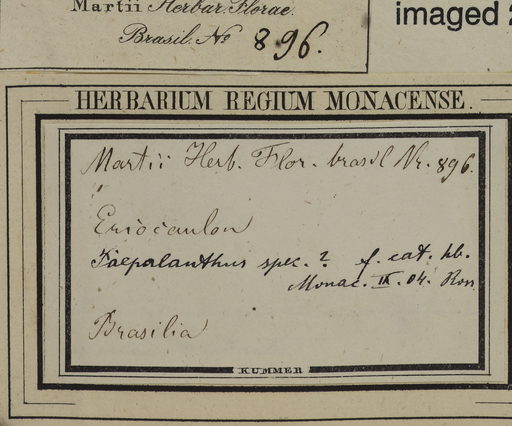 Martii Herbar. Florae
Brasil. No 896.
imaged
HERBARIUM REGIUM MONACENSE.
Martii Herb. Flor. brasil Nr. 896.
Eriocaulon
Paepalanthus spec. ? f. cat. hb.
Monac. IX. 04. Ross
Brasilia
KUMMER